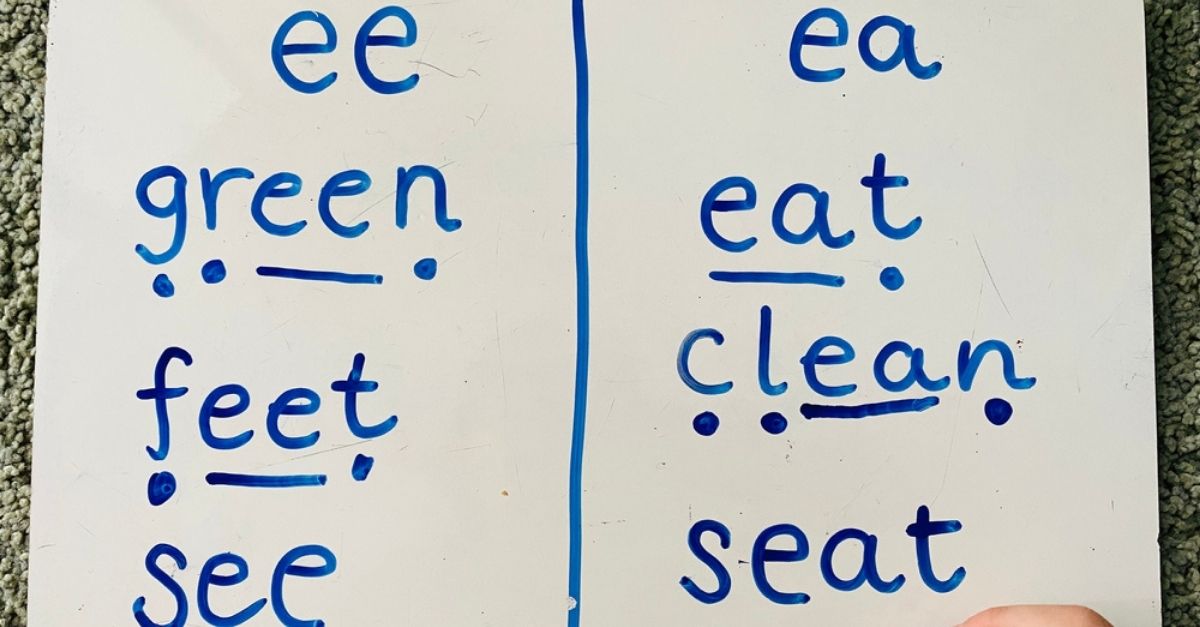 ee
green
feet
see
ea
eat
clean
seat